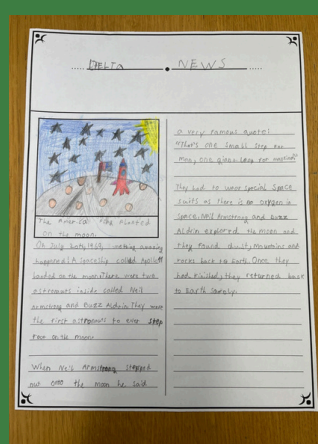 DELTA NEWS
The American flag planted
on the moon.
On July 20th, 1969, something amazing
happened! A spaceship called Apollo 11
landed on the moon. There were two
astronauts inside called Neil
Armstrong and Buzz Aldrin. They were
the first astronauts to ever step
foot on the moon!
When Neil Armstrong stepped
out onto the moon he said
a very famous quote!
"That's one small step for
man, one giant leap for mankind"
They had to wear special space
suits as there is no oxygen in
space. Neil Armstrong and Buzz
Aldrin explored the moon and
they found dust, mountains and
rocks back to Earth. Once they
had finished, they returned back
to Earth safely.